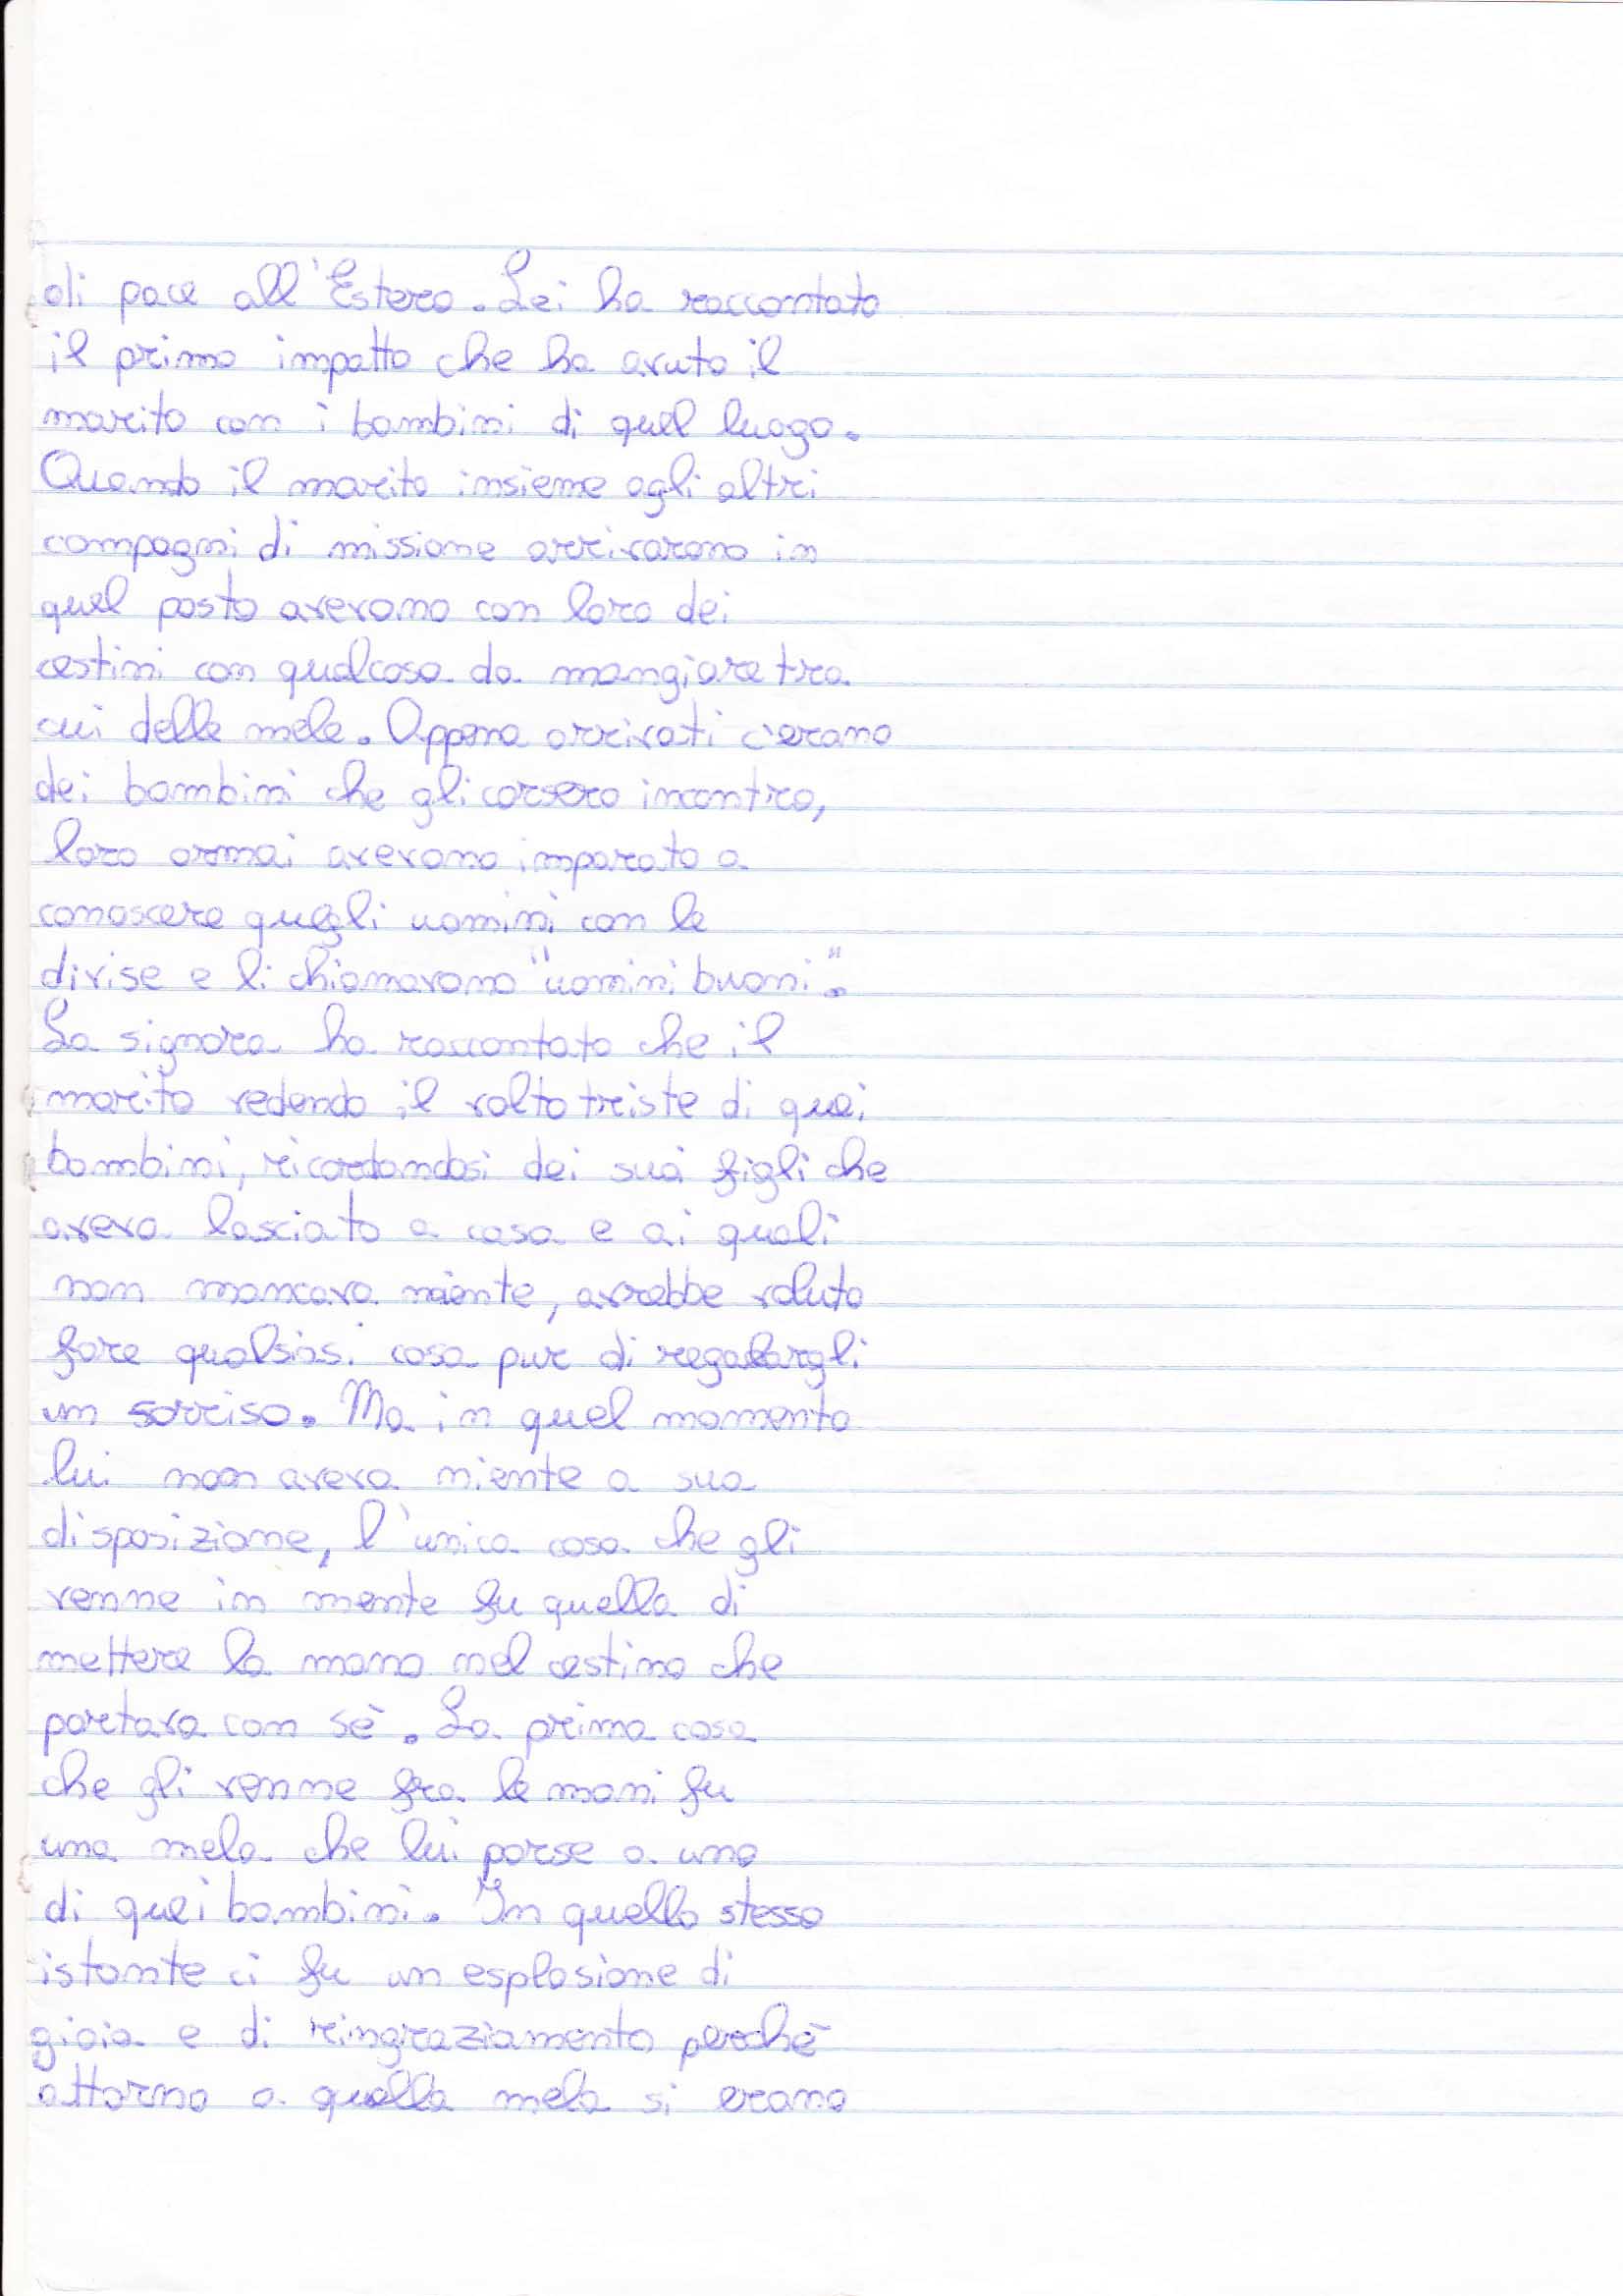 di pace all'Estero. Lei ha raccontato
il primo impatto che ha avuto il
marito con i bambini di quel luogo.
Quando il marito insieme agli altri
compagni di missione arrivarono in
quel posto avevano con loro dei
cestini con qualcosa da mangiare tra
cui delle mele. Appena arrivati c'erano
dei bambini che gli corsero incontro,
loro ormai avevano imparato a
conoscere quegli uomini con le
divise e li chiamavano "uomini buoni".
La signora ha raccontato che il
marito vedendo il volto triste di quei
bambini, ricordandosi dei suoi figli che
aveva lasciato a casa e ai quali
non mancava niente, avrebbe voluto
fare qualsiasi cosa pur di regalargli
un sorriso. Ma in quel momento
lui non aveva niente a sua
disposizione, l'unica cosa che gli
venne in mente fu quella di
mettere la mano nel cestino che
portava con sè. La prima cosa
che gli venne fra le mani fu
una mela che lui porse a uno
di quei bambini. In quello stesso
istante ci fu un esplosione di
gioia e di ringraziamento perchè
attorno a quella mela si erano